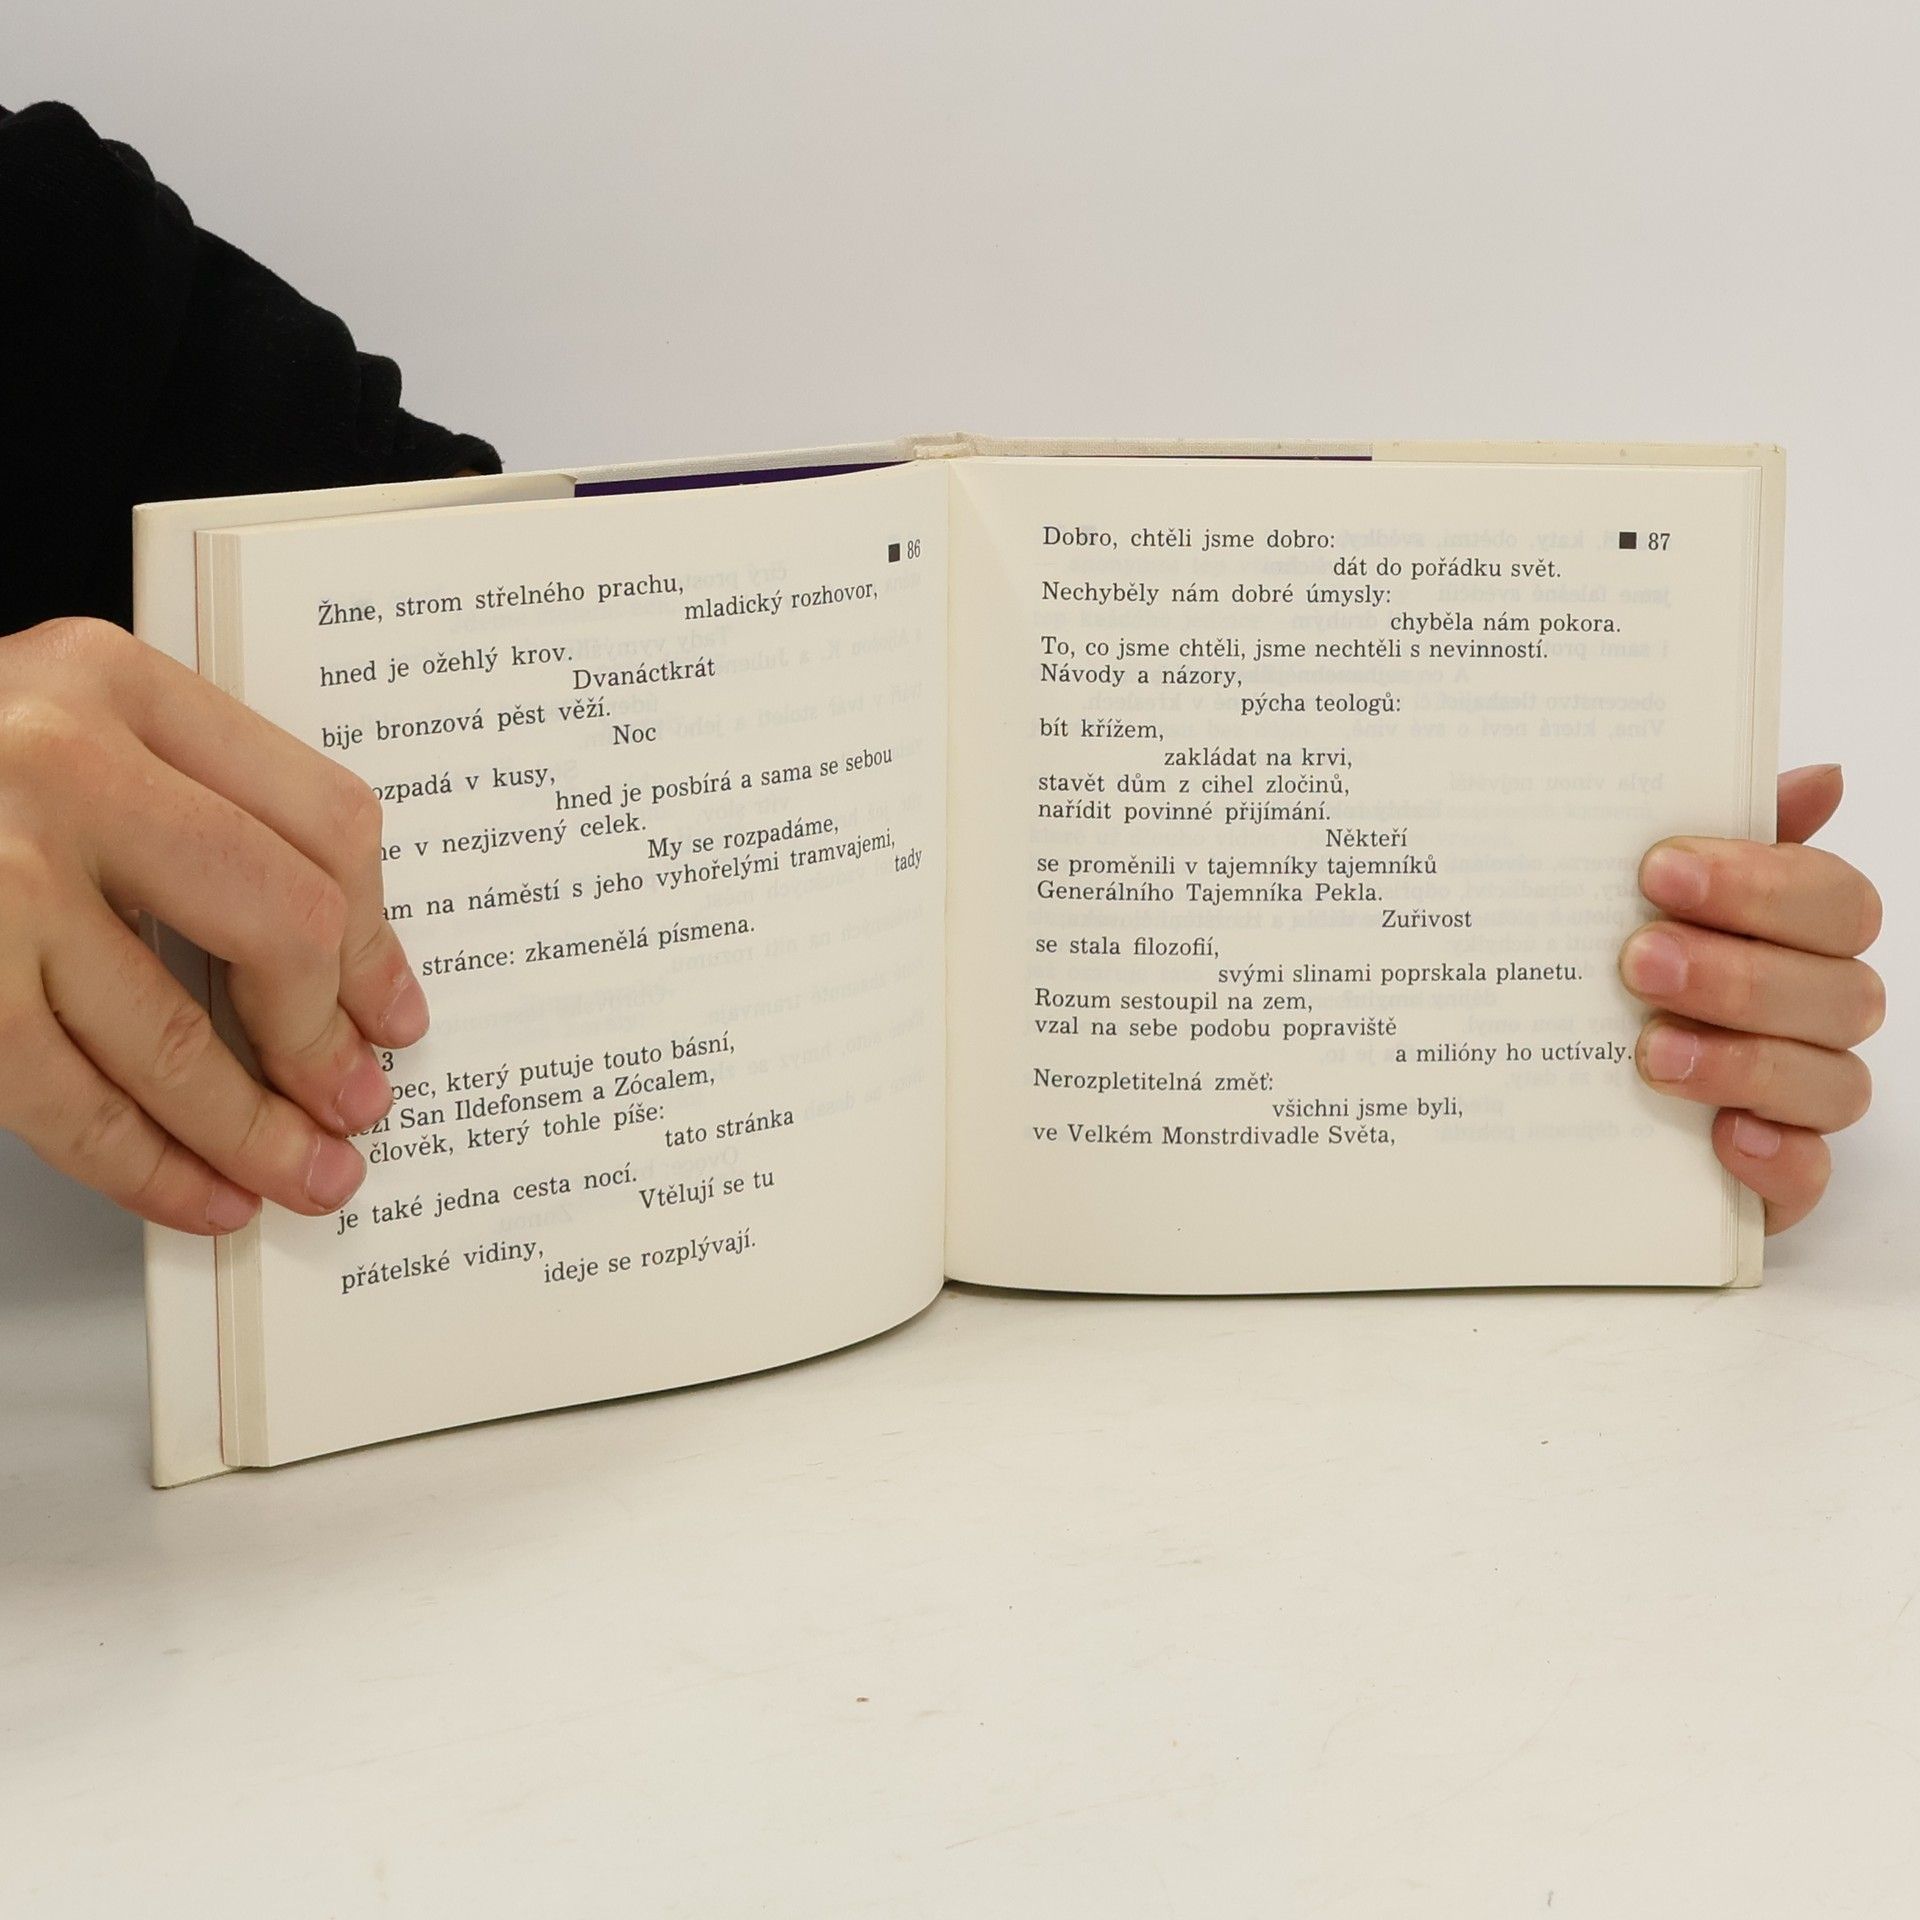 ■ 86
Žhne, strom střelného prachu,
mladický rozhovor,
hned je ožehlý krov.
Dvanáctkrát
bije bronzová pěst věží.
Noc
v kusy,
hned je posbírá a sama se sebou
v nezjizvený celek.
My se rozpadáme,
na náměstí s jeho vyhořelými tramvajemi,
tady
stránce: zkamenělá písmena.
3
který putuje touto básní,
San Ildefonsem a Zócalem,
člověk, který tohle píše:
tato stránka
je také jedna cesta nocí.
Vtělují se tu
přátelské vidiny,
ideje se rozplývají.
■ 87
Dobro, chtěli jsme dobro:
dát do pořádku svět.
Nechyběly nám dobré úmysly:
chyběla nám pokora.
To, co jsme chtěli, jsme nechtěli s nevinností.
Návody a názory,
pýcha teologů:
bít křížem,
zakládat na krvi,
stavět dům z cihel zločinů,
nařídit povinné přijímání.
Někteří
se proměnili v tajemníky tajemníků
Generálního Tajemníka Pekla.
Zuřivost
se stala filozofií,
svými slinami poprskala planetu.
Rozum sestoupil na zem,
vzal na sebe podobu popraviště
a milióny ho uctívaly.
Nerozpletitelná změť:
všichni jsme byli,
ve Velkém Monstrdivadle Světa,